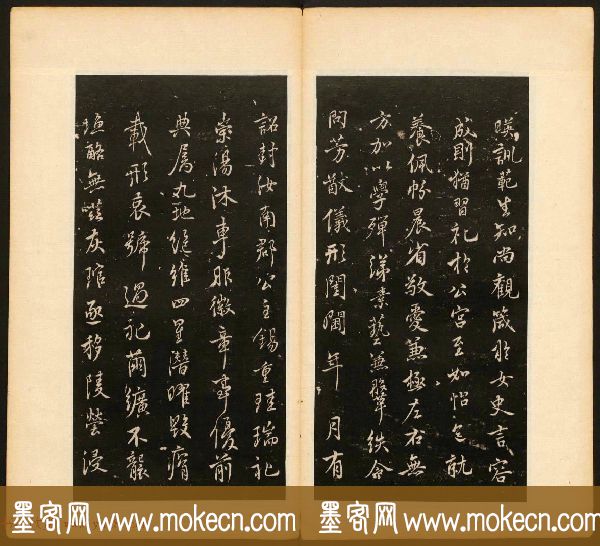 暎訓範生知尚觀箴於女史言容
成則猶習礼於公宮至如怡色就
養佩帉晨省敬愛兼極左右無
方加以學殫綈素藝兼鞶紩令
問芳猷儀形閨閫年月有
詔封汝南郡公主錫重珪瑞礼
崇湯沐車服徽章事優前
典属九地絕維四星潛曜毀瘠
載形哀號過礼繭纊不襲
塩酪無嗞灰琯亟移陵塋浸
墨客网 www.mokecn.com 墨客网 www.mokecn.com